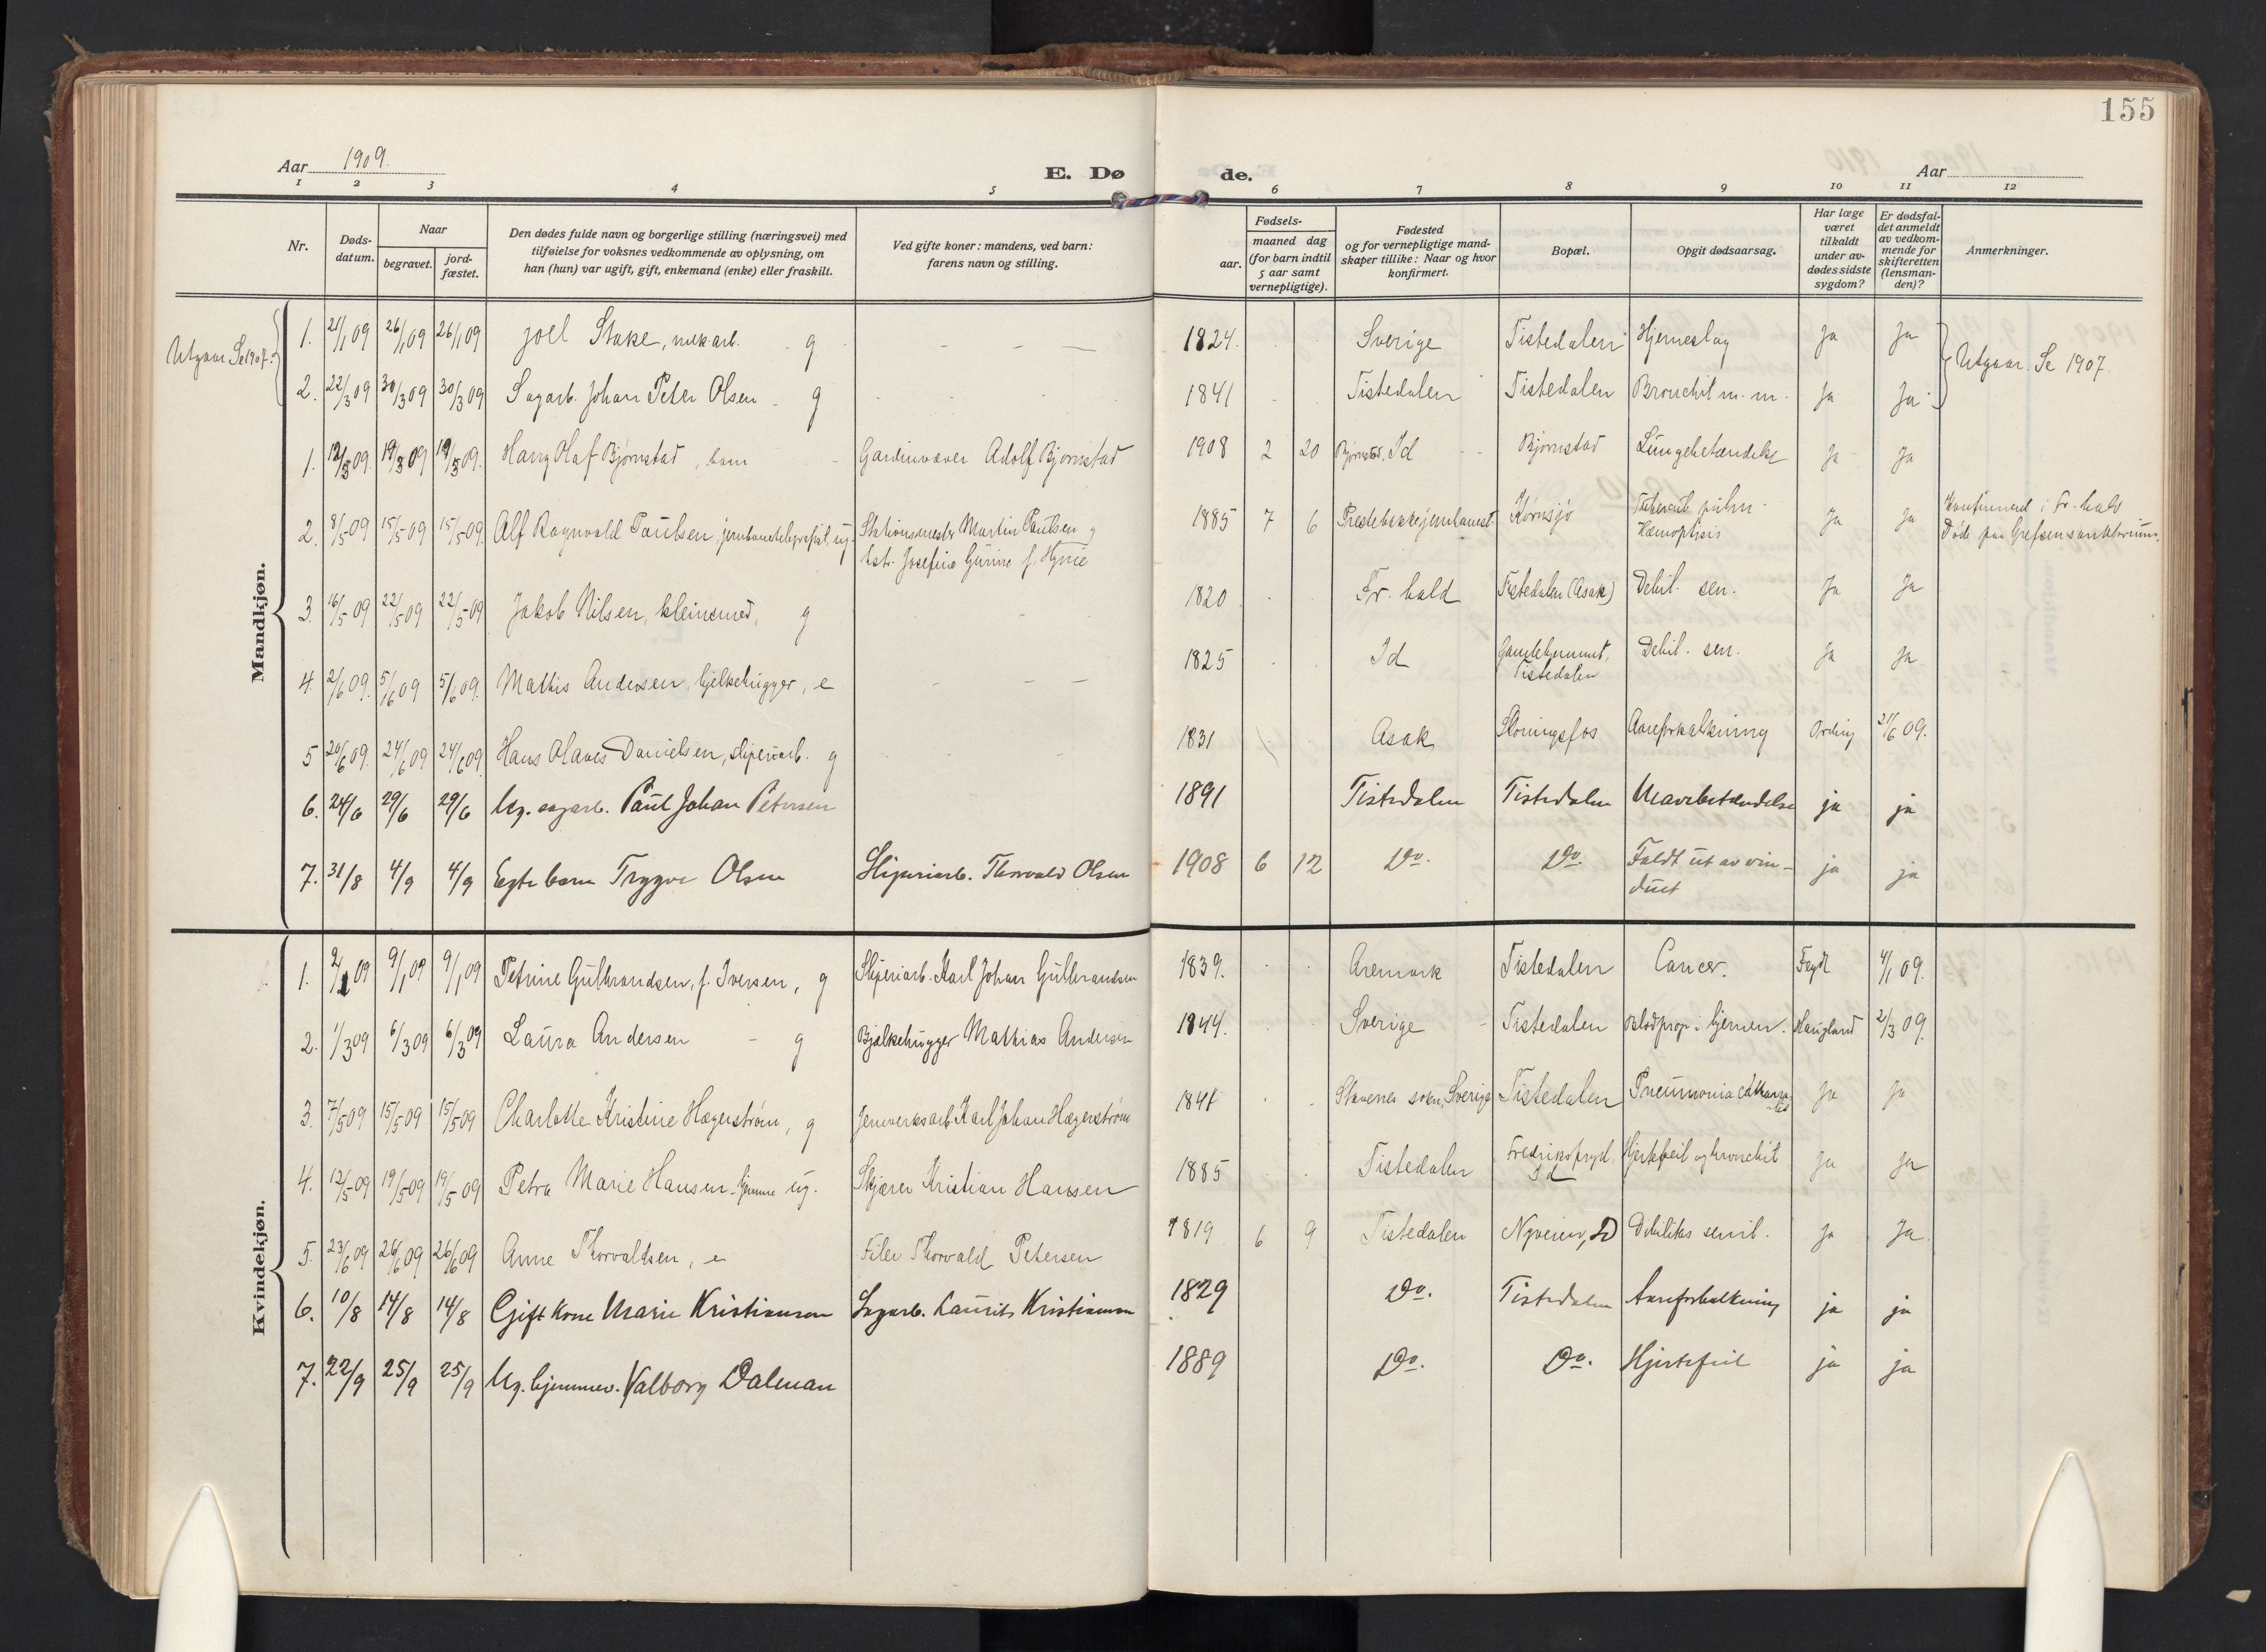 155
Aar 1909.
E. Dø
de.
Aar
1 2 3 4 5 6 7 8 9 10 11 12
Nr.
Døds-
datum.
Naar
begravet.
jord-
fæstet.
Den dødes fulde navn og borgerlige stilling (næringsvei) med
tilføielse for voksnes vedkommende av oplysning, om
han (hun) var ugift, gift, enkemand (enke) eller fraskilt.
Ved gifte koner: mandens, ved barn:
farens navn og stilling.
Fødsels-
aar.
maaned dag
(for barn indtil
5 aar samt
vernepligtige).
Fødested
og for vernepligtige mand-
skaper tillike: Naar og hvor
konfirmert.
Bopæl.
Opgit dødsaarsag.
Har læge
været
tilkaldt
under av-
dødes sidste
sygdom?
Er dødsfal-
det anmeldt
av vedkom-
mende for
skifteretten
(lensman-
den)?
Anmerkninger.
Mandkjøn.
Utgaar Se 1907.
1. 21/1 09 26/1 09 26/1 09 Joel Stake, mek.arb. g - - - 1824. Sverige Tistedalen Hjerneslag Ja Ja Utgaar. Se 1907.
2. 22/3 09 30/3 09 30/3 09 Sagarb. Johan Peter Olsen g 1841 Tistedalen Tistedalen Bronchit m. m. Ja Ja
1. 12/5 09. 19/5 09 19/5 09. Harry Olaf Bjørnstad, barn Gardinvæver Adolf Bjørnstad 1908 2 20 Bjørnstad, Id Bjørnstad Lungebetændelse Ja Ja
2. 8/5-09 15/5-09 15/5-09. Alf Ragnvald Paulsen, jernbanetelegrafist, ug. Stationsmester Martin Paulsen og
hst. Josefine Gurine f. 1885 7 6 Prestebakke jernbanest. Kornsjø Tuberculi pulm.
Hæmoptisis Ja Ja Konfirmeret i Fr.hald
Døde paa Grefsen sanatorium.
3. 16/5-09 22/5-09 22/5-09 Jakob Nilsen, kleinsmed, g 1820 Fr. hald Tistedalen (Asak) Debil. sen. Ja Ja
4. 2/6 09. 5/6 09 5/6 09. Mathis Andersen, bjelkehugger, e - - - 1825 Id Gamlehjemmet,
Tistedalen Debil. sen. Ja Ja
5 20/6 09. 24/6 09 24/6 09. Hans Olaves Danielsen, sliperiarb. g 1831 Asak Skoningsfos Aareforkalkning Ording 21/6 09.
6. 24/6 29/6 29/6 Ug. sagarb. Paul Johan Petersen 1891 Tistedalen Tistedalen Mavebetændelse ja ja
7. 31/8 4/9 4/9 Egte barn Trygve Olsen Sliperiarb. Thorvald Olsen 1908 6 12 Do. Do. Faldt ut av vin-
duet ja ja
Kvindekjøn.
1. 2/1 09 9/1 09 9/1 09 Petrine Gulbrandsen, f. Iversen, g Sliperiarb. Karl Johan Gulbrandsen 1839. Aremark Tistedalen Cancer. Feydt 4/1 09.
2. 1/3 09 6/3 09 6/3 09 Laura Andersen - g Bjælkehugger Mathias Andersen 1844. Sverige Tistedalen Blodprop i hjernen. Haugland 2/3 09.
3. 7/5 09 15/5 09 15/5 09 Charlotte Kristine Hægerstrøm, g Jernverksarb. Karl Johan Hægerstrøm 1841 sokn, Sverige Tistedalen Pneumonia Ja Ja
4. 12/5-09 19/5-09 19/5-09 Petra Marie Hansen hjemme ug. Skjærer Kristian Hansen 1885 Tistedalen Fredriksfryd,
Id Hjertefeil og bronchit Ja Ja
5. 23/6 09 26/6 09 26/6 09 Anne Thorvaldsen, e Filer Thorvald Petersen 1819 6 9 Tistedalen Nyveien, D Debilitas senil. Ja Ja
6. 10/8 14/8 14/8 Gift kone Marie Kristiansen Sagarb. Laurits Kristiansen 1829 Do. Tistedalen Aareforkalkning ja ja
7. 22/9 25/9 25/9 Ug. hjemmev. Valborg Dalman 1889 Do. Do. Hjertefeil ja ja